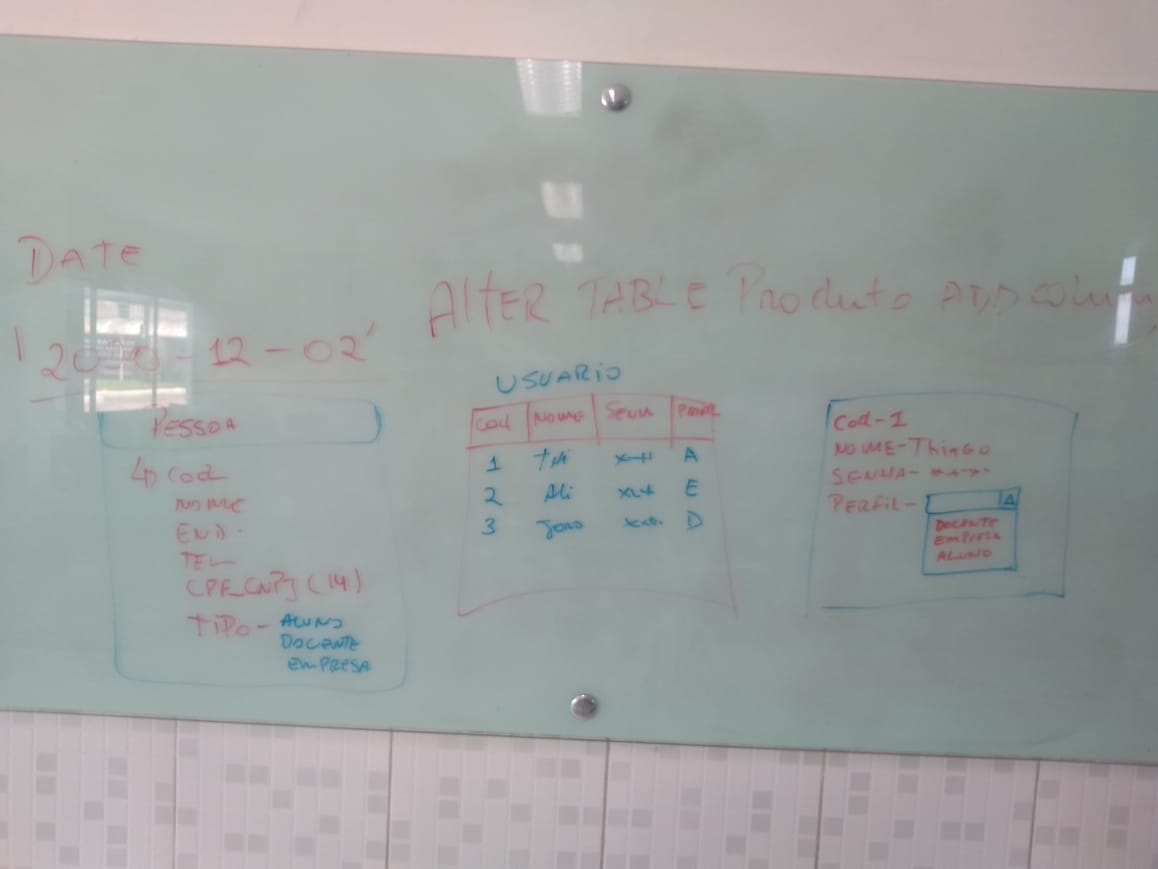 DATE
'2020-12-02'
AlTER TABLE Produto ADD column
PESSOA
Cod
NOME
END.
TEL
CPF_CNPJ (14)
TIPO - ALUNO
DOCENTE
EMPRESA
USUARIO
Cod NOME
1 A
2 Ali E
3 Joao D
Cod-1
NOME-Thiago
SENHA-
PERFIL-
DOCENTE
EMPRESA
ALUNO